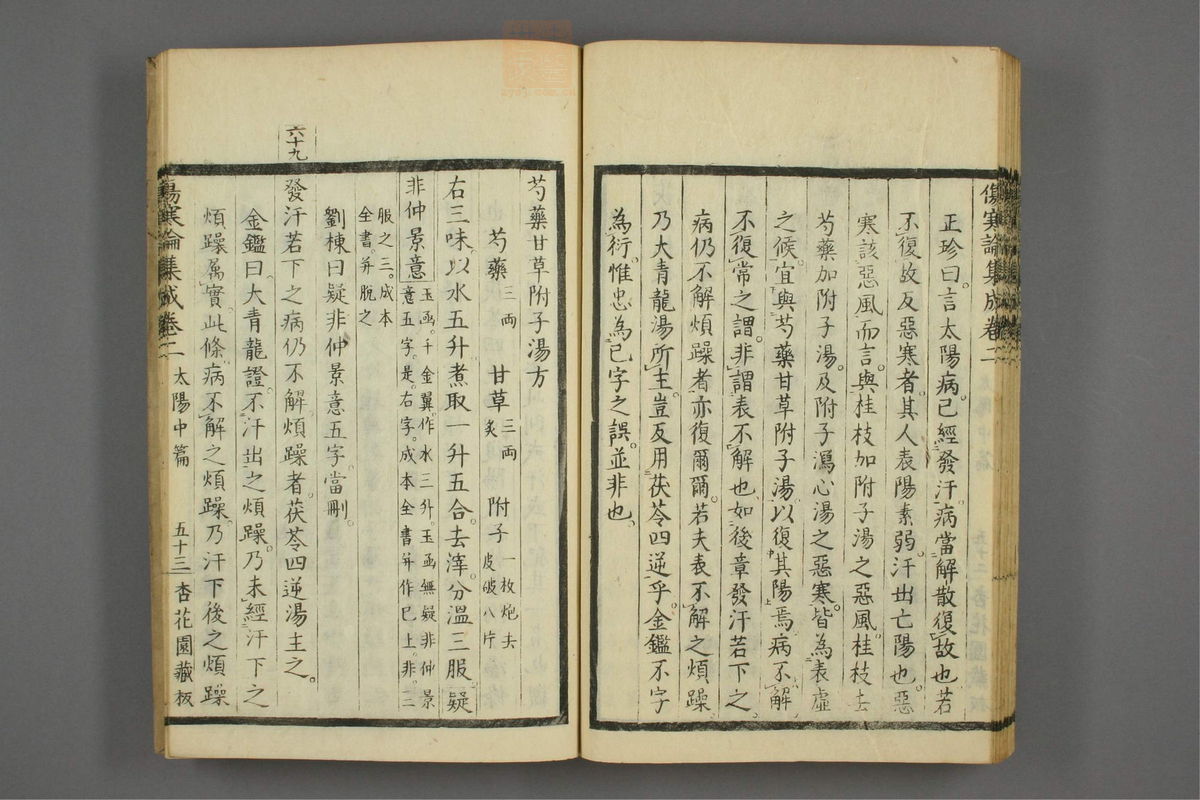 傷寒論集成卷二
正珍曰。言太陽病。已經發汗。病當解散復故也若
不復故反惡寒者。其人表陽素弱。汗出亡陽也。惡
寒該惡風而言。與桂枝加附子湯之惡風。桂枝去
芍藥加附子湯。及附子瀉心湯之惡寒。皆為表虛
之候。宜與芍藥甘草附子湯。以復其陽焉。病不解
不復常之謂。非謂表不解也。如後章發汗若下之
病仍不解煩躁者。亦復爾爾。若夫表不解之煩躁。
乃大青龍湯所主。豈反用茯苓四逆乎。金鑑不字
為衍。惟忠為已字之誤。並非也。
芍藥甘草附子湯方
芍藥三兩 甘草三兩炙 附子一枚炮去皮破八片
右三味。以水五升煮取一升五合。去滓。分溫三服。疑
非仲景意玉函千金翼作水三升。玉函無疑非仲景
意五字。是。右字。成本全書并作已上。非。三
服之三。成本
全書。并脫之
劉棟曰疑非仲景意五字。當刪。
六十九
發汗若下之病仍不解。煩躁者。茯苓四逆湯主之。
金鑑曰。大青龍證。不汗出之煩躁。乃未經汗下之
煩躁。屬實。此條。病不解之煩躁。乃汗下後之煩躁
傷寒論集成卷二 太陽中篇 五十三 杏花園藏板